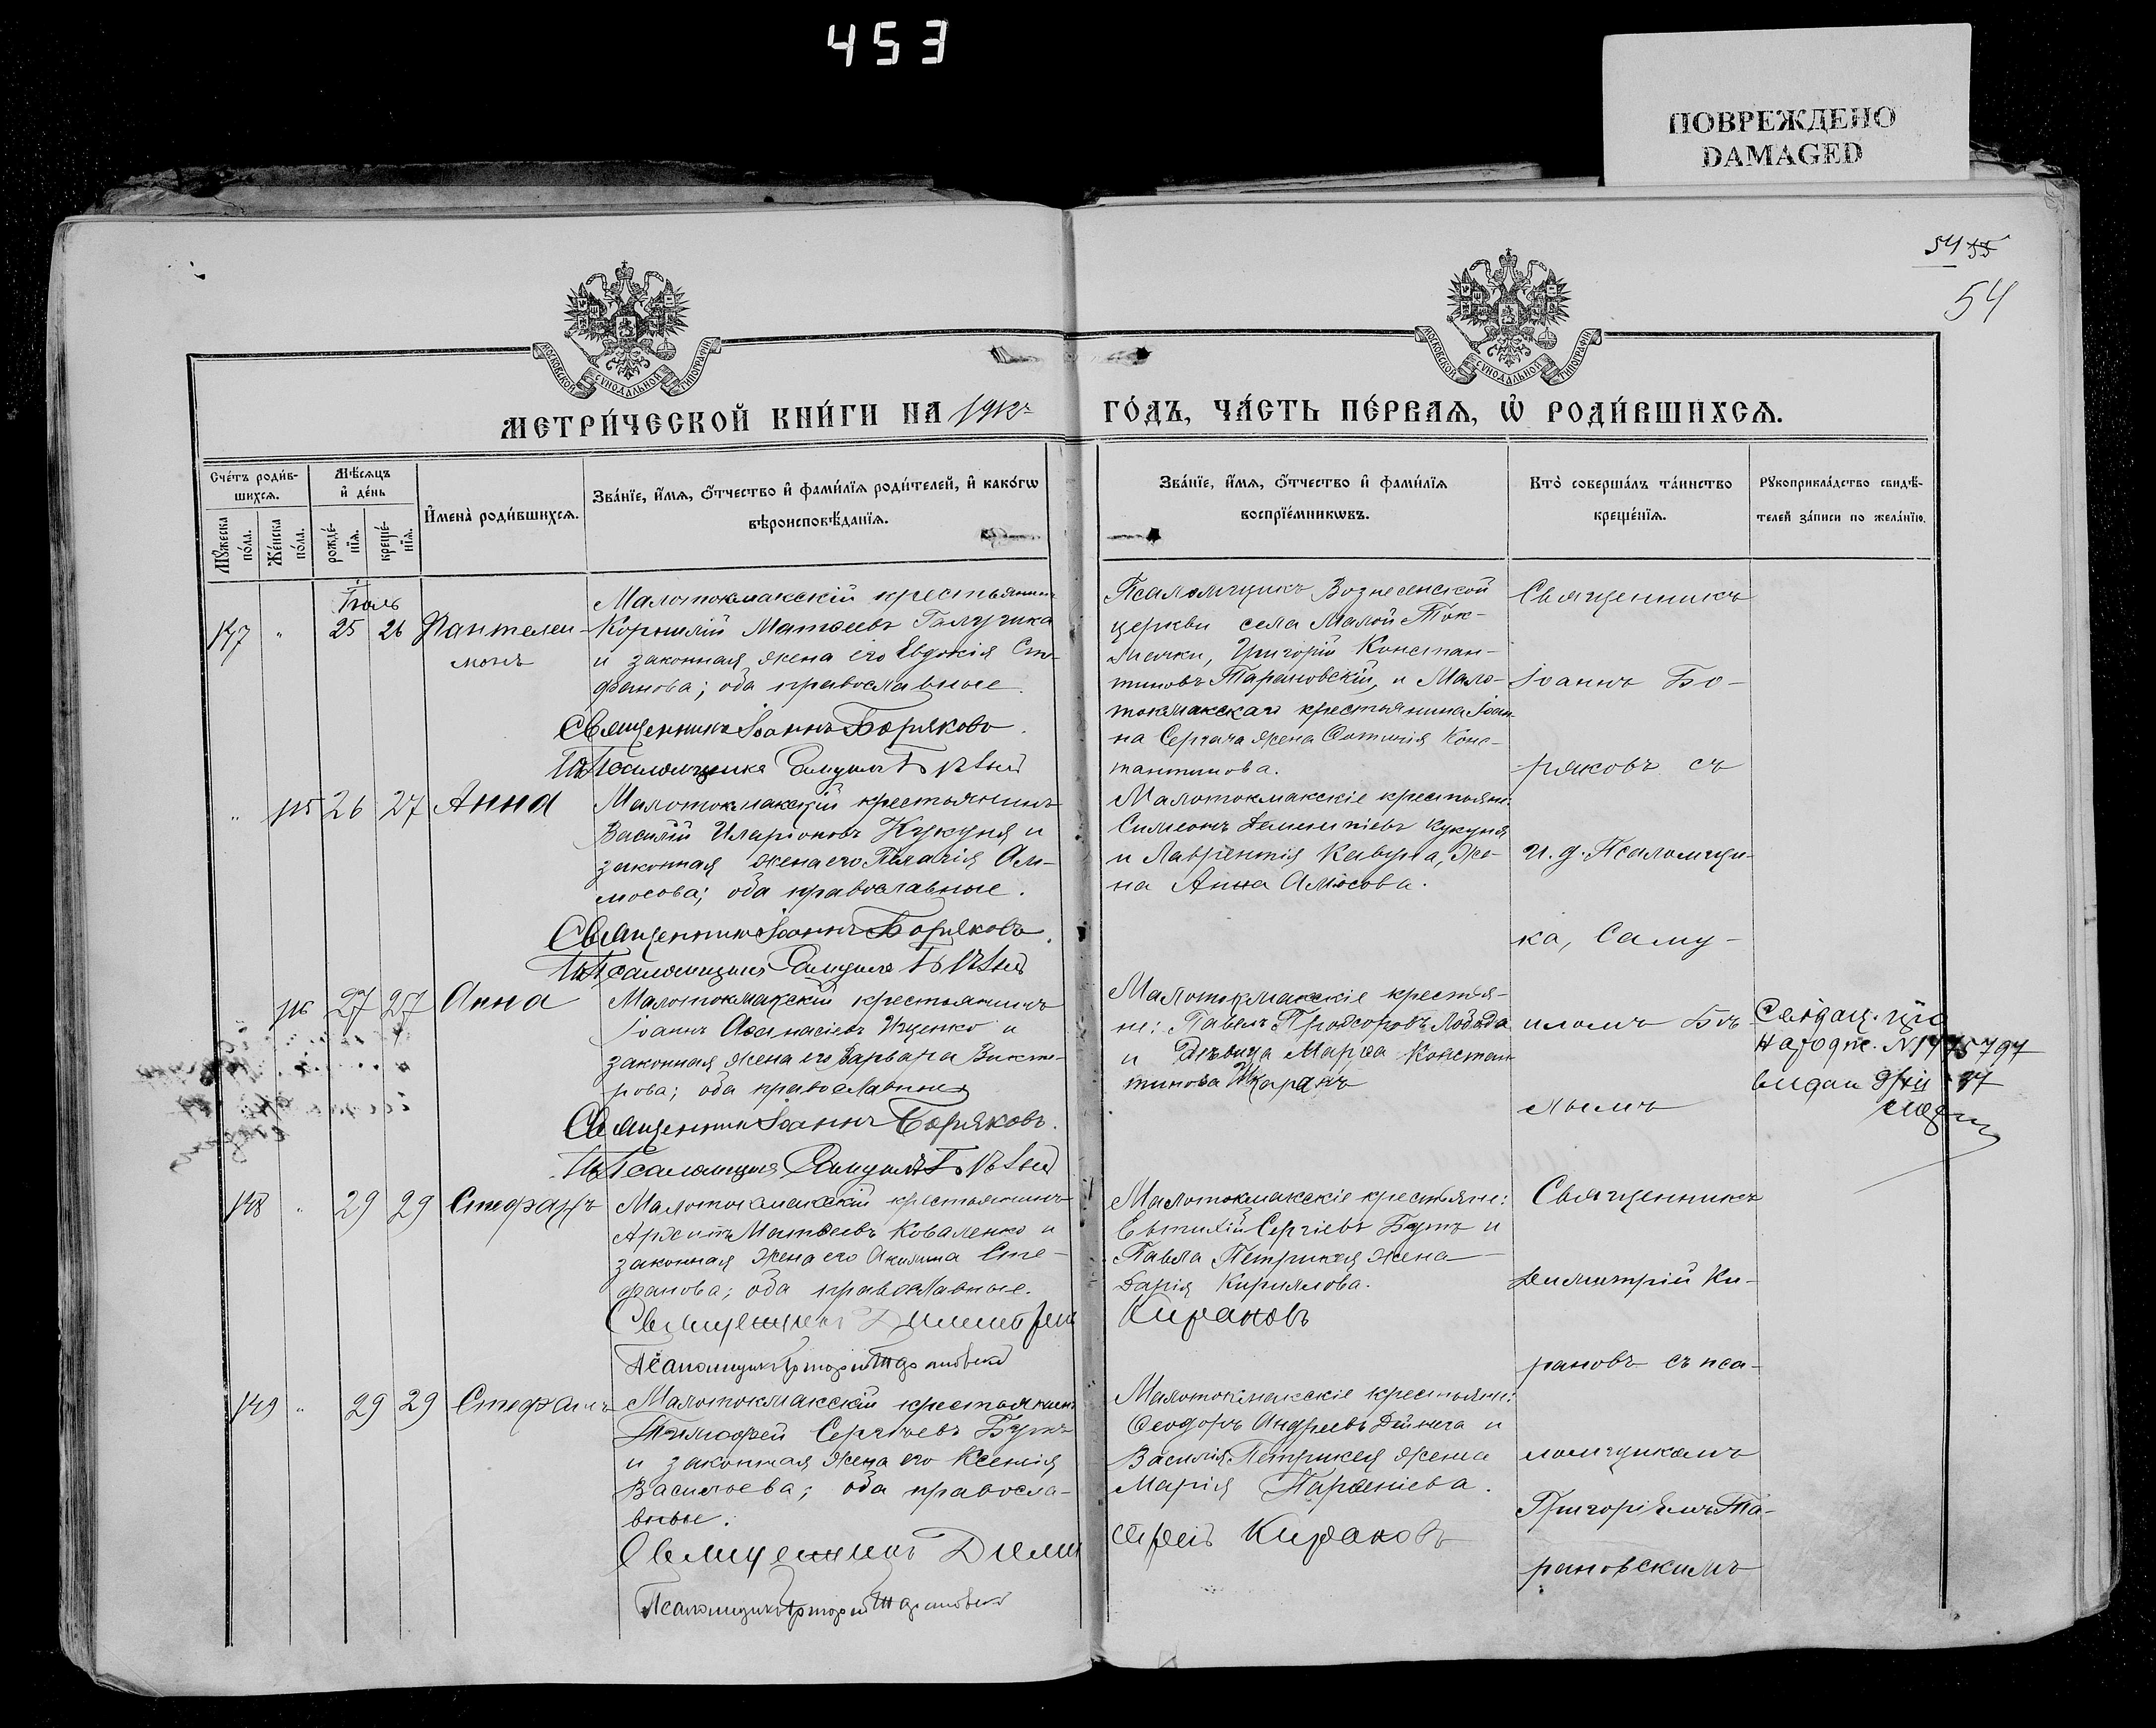 453
ПОВРЕЖДЕНО
DAMAGED
54 55
54
МОСКОВСКОЙ СѴНОДАЛЬНОЙ ТИПОГРАФІИ
МОСКОВСКОЙ СѴНОДАЛЬНОЙ ТИПОГРАФІИ
МЕТРИ́ЧЕСКОЙ КНИ́ГИ НА 1912 ГО́ДЪ, ЧА́СТЬ ПЕ́РВАѦ, Ѡ҆ РОДИ́ВШИХСѦ.
Сче́тъ роди́в-
шихсѧ.
Мꙋ́жеска по́ла.
Же́нска по́ла.
Мѣ́сѧцъ
и҆ де́нь
рожде́-
нїѧ.
креще́-
нїѧ.
И҆мена̀ роди́вшихсѧ.
Зва́нїе, и҆́мѧ, ѻ҆́тчество и҆ фами́лїѧ роди́телей, и҆ како́гѡ
вѣроисповѣ́данїѧ.
Зва́нїе, и҆́мѧ, ѻ҆́тчество и҆ фами́лїѧ
воспрїе́мникѡвъ.
Кто̀ соверша́лъ та́инство
креще́нїѧ.
Рꙋкоприкла́дство свидѣ́-
телей за́писи по жела́нїю.
Іюль
147 " 25 26 Пантелеи-
монъ
Малотокмакскій крестьянинъ
Корнилій Матѳеевъ Галушка
и законная жена его Евдокія Сте-
фанова; оба православные.
Священникъ Іоаннъ Боряковъ.
Псаломщика Самуилъ
Псаломщикъ Вознесенской
церкви села Малой Ток-
мачки, Григорій Констан-
тиновъ Тарановскій, и Мало-
токмакскаго крестьянина Іоан-
на Сергача жена Фотинія Конс-
тантинова.
Священникъ
Іоаннъ Бо-
ряковъ съ
и. д. Псаломщи-
ка, Саму-
иломъ Бѣ-
лымъ
" 115 26 27 Анна
Малотокмакскій крестьянинъ
Василій Иларіоновъ Кукуня и
законная жена его Пелагія Ам-
мосова; оба православные.
Священникъ Іоаннъ Боряковъ.
Псаломщика Самуилъ
Малотокмакскіе крестьяне:
Симеонъ Дементіевъ Кукуня
и Лаврентія Кавуна, же-
на Анна Амосова.
116 27 27 Анна
Малотокмакскій крестьянинъ
Іоаннъ Аѳанасіевъ Ищенко и
законная жена его Варвара Викто-
рова; оба православные
Священникъ Іоаннъ Боряковъ.
Псаломщика Самуилъ
Малотокмакскіе крестья-
не: Павелъ Лобода
и дѣвица Марѳа Констан-
тинова
148 " 29 29 Стефанъ
Малотокмакскій крестьянинъ
Арсеній Матѳеевъ Коваленко и
законная жена его Акилина Сте-
фанова; оба православные.
Священникъ Димитрій Кирановъ
Псаломщикъ Григорій Тарановскій
Малотокмакскіе крестьяне:
Евтихій Сергіевъ Бутъ и
Павла Петрикея жена
Дарія Кириллова.
Священникъ
Димитрій Ки-
рановъ съ пса-
ломщикомъ
Григоріемъ Та-
рановскимъ
149 " 29 29 Стефанъ
Малотокмакскій крестьянинъ
Тимофей Сергіевъ Бутъ
и законная жена его Ксенія
Васильева; оба правосла-
вные.
Священникъ Димитрій Кирановъ
Псаломщикъ Григорій Тарановскій
Малотокмакскіе крестьяне:
Ѳеодоръ Андреевъ Дейнега и
Василія Петрикея жена
Марія Парѳеніева.